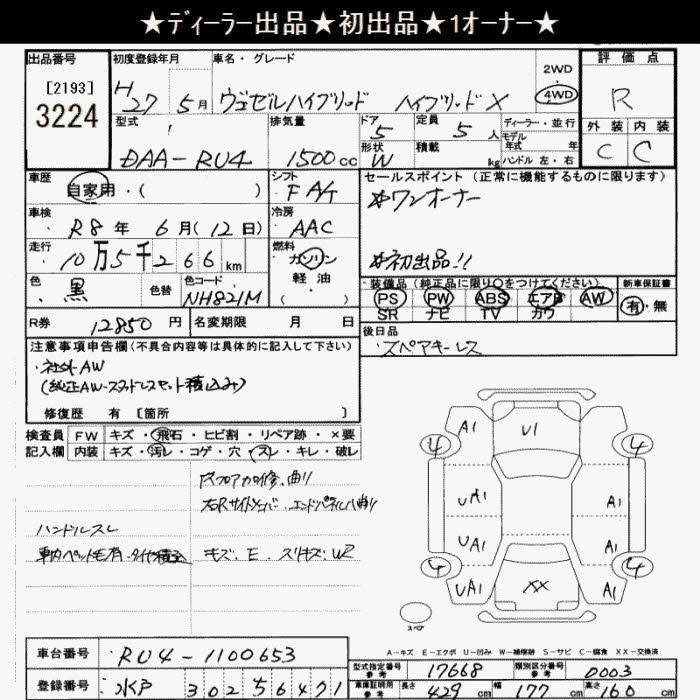 ★ディーラー出品★初出品★1オーナー★
出品番号 [2193] 3224
初度登録年月 H27 5月
車名・グレード ヴェゼルハイブリッド ハイブリッドX
2WD 4WD
評価点 R
外装 内装
C C
型式 DAA-RU4
排気量 1500cc
ドア 5 形状 W
定員 5人 積載 kg
ディーラー・並行
モデル年式 年
ハンドル 左・右
車歴 自家用・( )
シフト FA/T
車検 R8年 6月(12日)
冷房 AAC
走行 10万5千266km
燃料 ガソリン 軽油 ( )
色 黒 色替 色コード NH821M
R券 12850円 名変期限 月 日
セールスポイント (正常に機能するものに限ります)
☆ワンオーナー
☆初出品!!
装備品(純正品に限り○をつけてください)
PS PW ABS エアB AW
SR ナビ TV カワ
新車保証書 有・無
後日品
・スペアキーレス
注意事項申告欄(不具合内容等は具体的に記入して下さい)
・社外AW
(純正AW・スタッドレスセット積込み)
修復歴 有 [箇所 ]
検査員記入欄
FW キズ・飛石・ヒビ割・リペア跡・×要
内装 キズ・汚レ・コゲ・穴・スレ・キレ・破レ
ハンドルスレ
キズ・E・スリキズ・W2
A1 U1
4 4
UA1 A1
UA1 A1
4 4
UA1 XX A1
スペア
A-キズ E-エクボ U-凹み W-補修跡 S-サビ C-腐食 XX-交換済
車台番号 RU4-1100653
登録番号 水戸 302 す 6421
型式指定番号 参考 17668
類別区分番号 参考 0003
車庫証明用 参考 長さ 429cm 幅 177cm 高さ 160cm